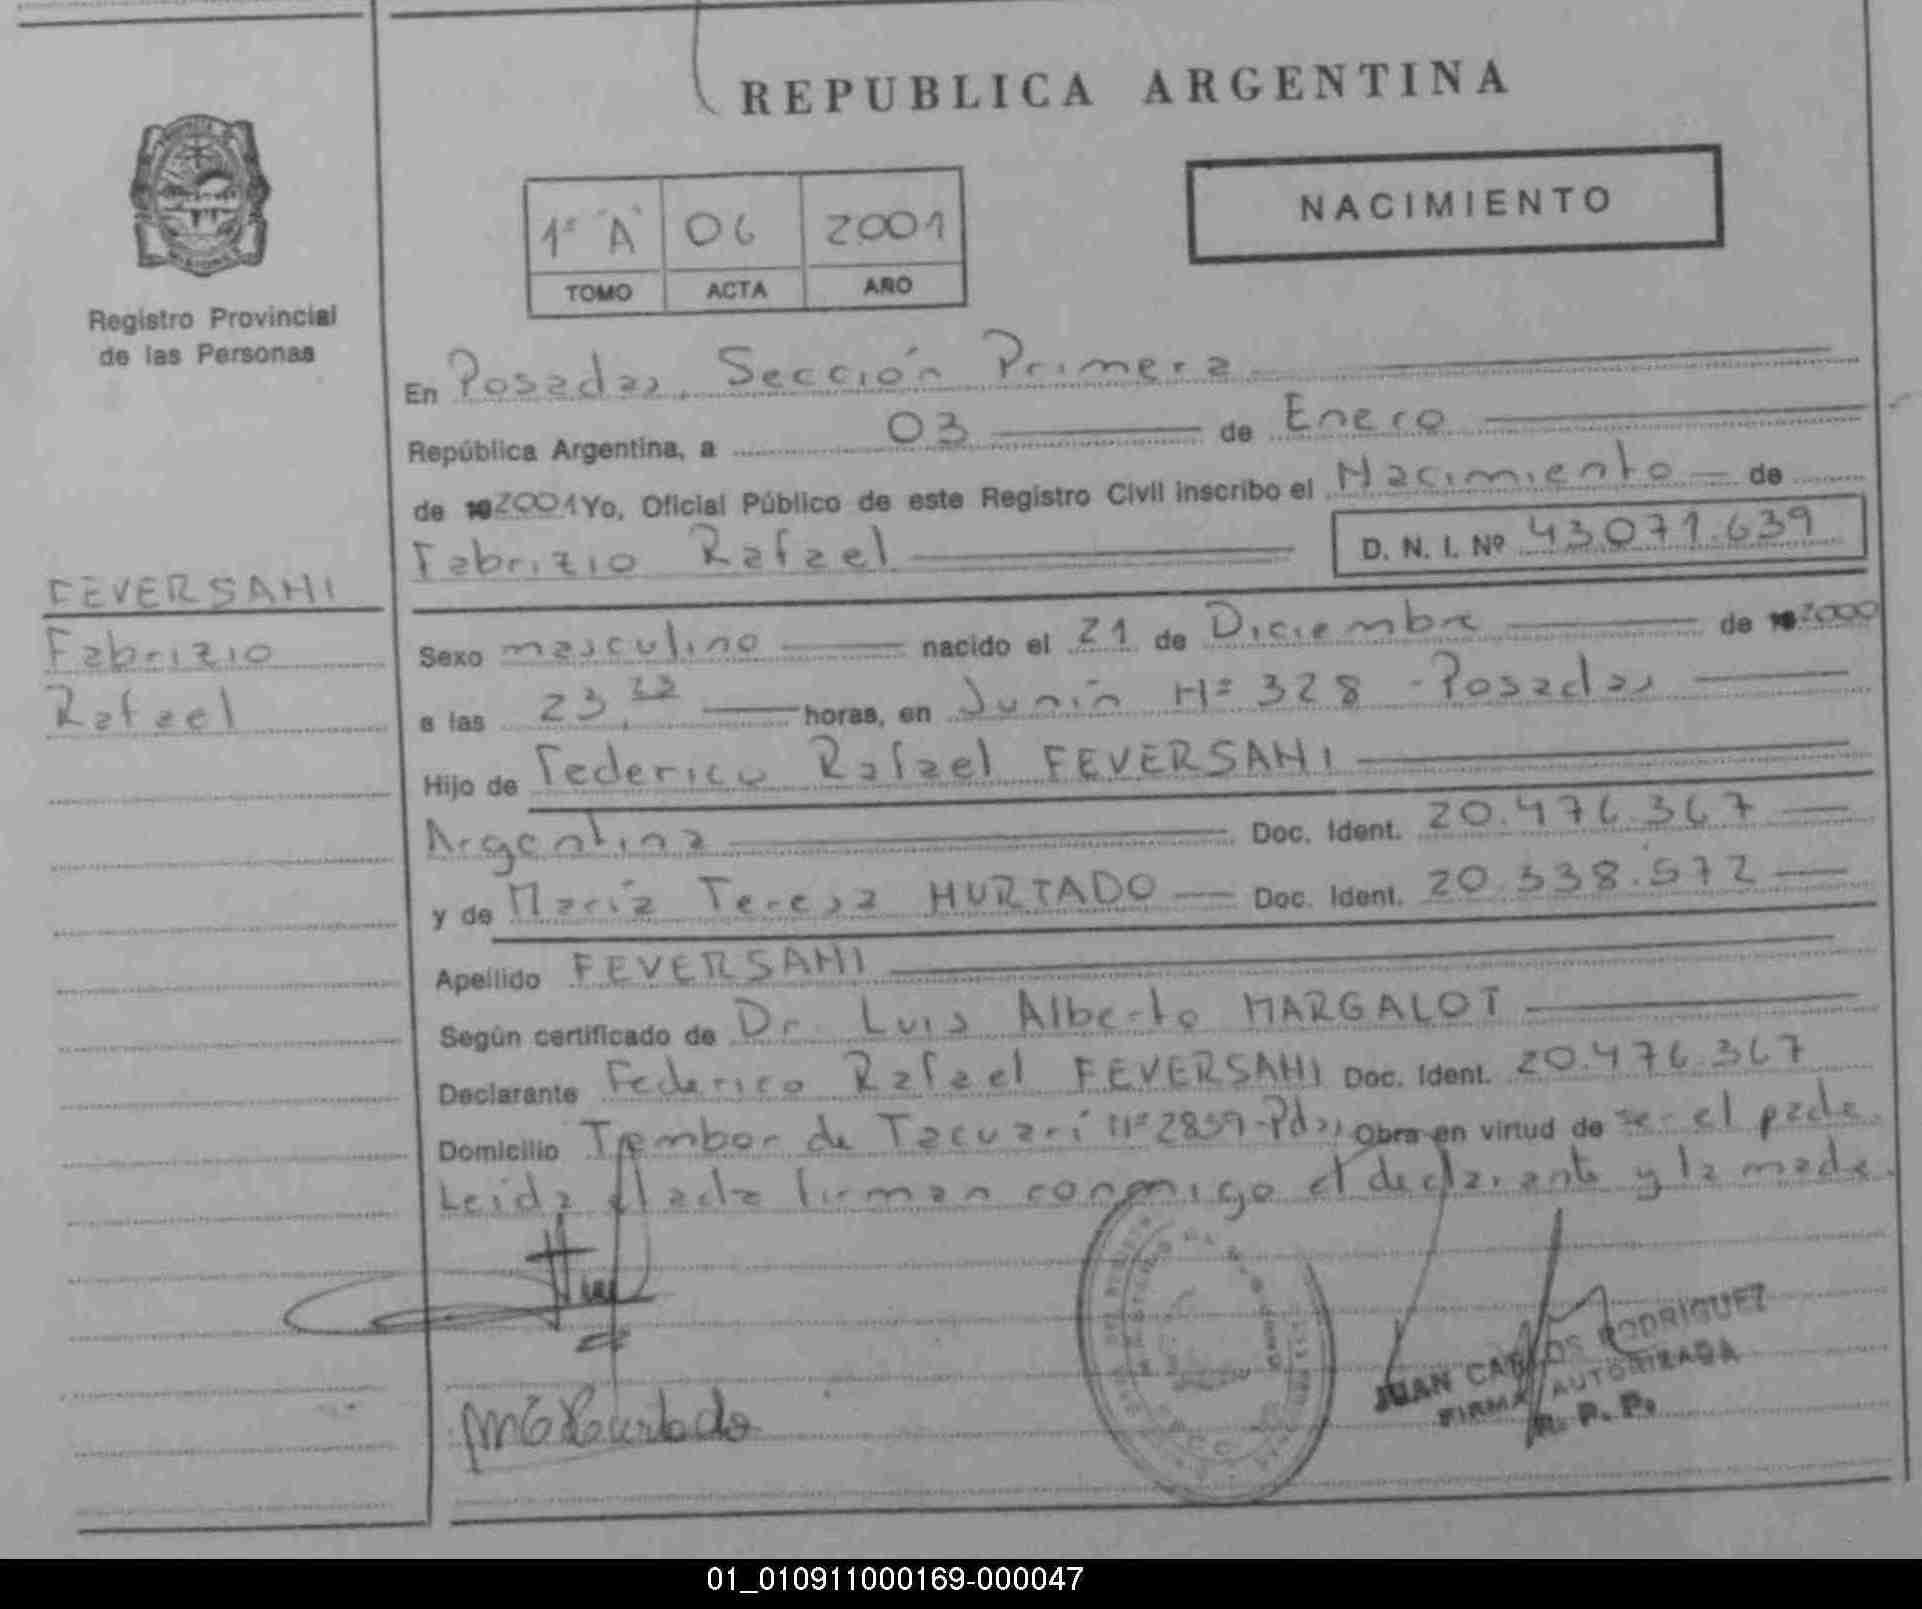 REPUBLICA ARGENTINA
NACIMIENTO
1º "A" 06 2001
TOMO ACTA AÑO
Registro Provincial
de las Personas
En Posadas, Sección Primera
República Argentina, a 03 de Enero
de 19 2001 Yo, Oficial Público de este Registro Civil inscribo el Nacimiento de
Fabrizio Rafael D. N. I. Nº 43.071.639
FEVERSANI
Fabrizio
Rafael
Sexo masculino nacido el 21 de Diciembre de 19 2000
a las 23, horas, en Junín Nº 328 - Posadas
Hijo de Federico Rafael FEVERSANI
Argentina Doc. Ident. 20.476.367
y de María Teresa HURTADO Doc. Ident. 20.338.572
Apellido FEVERSANI
Según certificado de Dr. Luis Alberto MARGALOT
Declarante Federico Rafael FEVERSANI Doc. Ident. 20.476.367
Domicilio Tambor de Tacuarí Nº 2859-Pdas, Obra en virtud de ser el padre.
Leida el acta firman conmigo el declarante y la madre.
JUAN CARLOS RODRIGUEZ
FIRMA AUTORIZADA
R. P. P.
MTHurtado
01_010911000169-000047